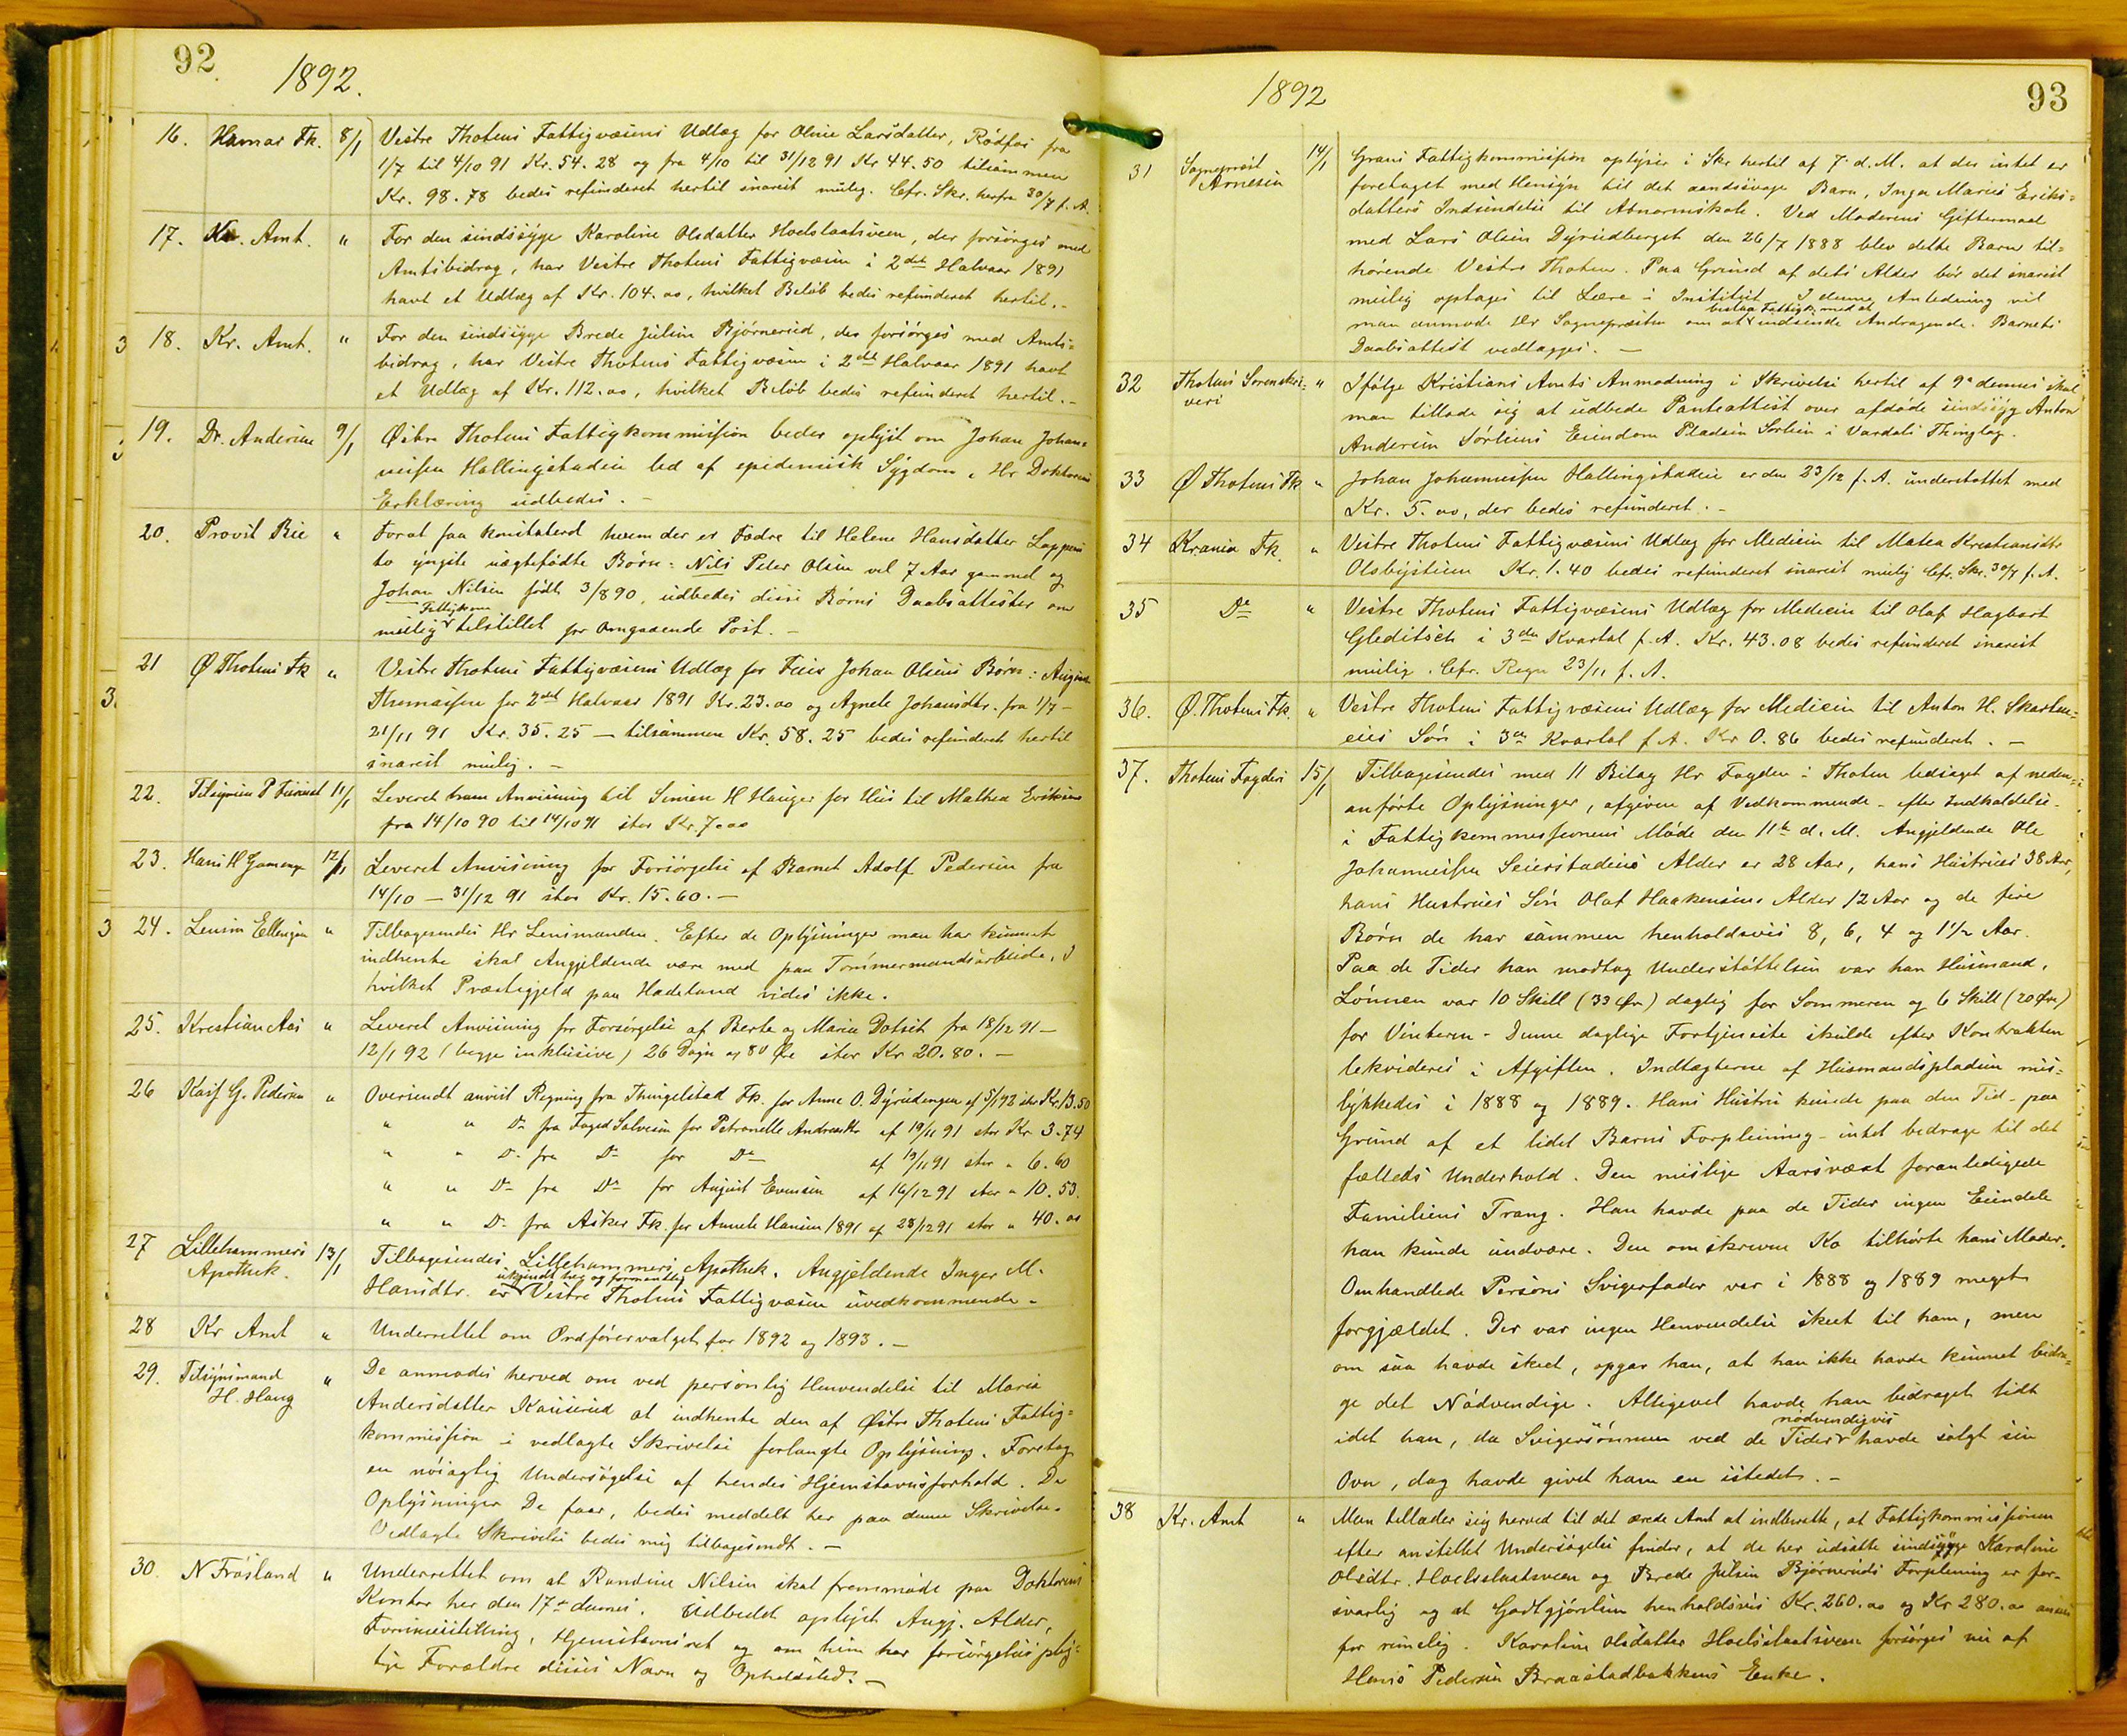 92
1892.
16. Hamar Fk. 8/1 Vestre Thotens Fattigvæsens Udlæg for Oline Larsdatter, Rödfos fra
1/7 til 4/10 91 Kr. 54.28 og fra 4/10 til 31/12 91 Kr 44.50 tilsammen
Kr. 98.78 bedes refunderet hertil snarest mulig. Cfr. Skr. herfra 30/7 f. A.
17. Kr. Amt. " For den sindssyge Karoline Olsdatter Hoelslaatsveen, der forsörges med
Amtsbidrag, har Vestre Thotens Fattigvæsen i 2det Halvaar 1891
havt et Udlæg af Kr. 104.00, hvilket Belöb bedes refunderet hertil.-
3 18. Kr. Amt. " For den sindssyge Brede Julsen Bjørnerud, der forsörges med Amts=
bidrag, har Vestre Thotens Fattigvæsen i 2det Halvaar 1891 havt
et Udlæg af Kr. 112.00, hvilket Belöb bedes refunderet hertil.-
19. Dr. Andersen 9/1 Östre Thotens Fattigkommission beder oplyst om Johan Johan=
nessen Hallingstadeie led af epidemisk Sygdom. Hr Doktorens
Erklæring udbedes.-
20. Provst Bie " Forat faa konstateret hvem der er Fædre til Helene Hansdatter Lappens
to yngste uægtefødte Børn: Nils Peter Olsen vel 7 Aar gammel og
Johan Nilsen født 3/8 90, udbedes disse Børns Daabsattester om
Fattigkom
mulig tilstillet pr omgaaende Post.-
21 Ø Thotens Fk " Vestre Thotens Fattigvæsens Udlæg for Johan Olsens Børn: August
Thomassen for 2det Halvaar 1891 Kr. 23.00 og Agnete Johansdtr. fra 1/7 -
3. 21/11 91 Kr. 35.25 — tilsammen Kr. 58.25 bedes refunderet hertil
snarest mulig.-
22. Tilsynsm P 11/1 Leveret ham Anvisning til Simen H Hauger for Hus til Mathea Eriksen
fra 14/10 90 til 14/10 91 stor Kr. 7.00
23. Hans H 12/1 Leveret Anvisning for Forsörgelse af Barnet Adolf Pedersen fra
14/10 — 31/12 91 stor Kr. 15.60.-
3 24. Lensm Ellengsen " Tilbagesendes Hr Lensmanden. Efter de Oplysninger man har kunnet
indhente skal Angjeldende være med paa Tømmermandsarbeide. I
hvilket Præstegjeld paa Hadeland vides ikke.
25. Kristian Aas " Leveret Anvisning for Forsørgelse af Berte og Maria Dotset fra 18/12 91 —
12/1 92 (begge inklusive) 26 Dage af 80 Øre stor Kr 20.80.-
26 Kasf G. Pedersen " Oversendt anvist Regning fra Thingelstad Fk. for Anne O. Dyrudengen af 5/1 92 stor Kr. 13.50
" " Do fra Foged Salvesen for Petronelle Andreasdtr af 19/11 91 stor Kr 3.74
" " Do fra Do for Do af 19/11 91 stor " 6.60
" " Do fra Do for August Evensen af 16/12 91 stor " 10.53.
" " Do fra Asker Fk. for Annete Hansen 1891 af 28/12 91 stor " 40.00
27 Lillehammers 13/1 Tilbagesendes Lillehammers Apothek. Angjeldende Inger M.
Apothek. ukjendt her og formentlig
Hansdtr. er Vestre Thotens Fattigvæsen uvedkommende.-
28 Kr Amt " Underrettet om Ordförervalget for 1892 og 1893.-
29. Tilsynsmand " De anmodes herved om ved personlig Henvendelse til Maria
H. Haug Andersdatter Kauserud at indhente den af Østre Thotens Fattig=
kommission i vedlagte Skrivelse forlangte Oplysning. Foretag
en nöiagtig Undersögelse af hendes Hjemstavnsforhold. De
Oplysninger De faar, bedes meddelt her paa denne Skrivelse.
Vedlagte Skrivelse bedes mig tilbagesendt.-
30. N Fröisland " Underrettet om at Randine Nilsen skal fremmøde paa Doktorens
Kontor her den 17de dennes. Udbedt oplyst Angj. Alder,
Formuesstilling, Hjemstavnsret og om hun har forsörgelsesplig=
tige Forældre disses Navn og Opholdssted.-
1892
93
31 Sogneprest 14/1 Grans Fattigkommission oplyser i Skr hertil af 7 d. M. at der intet er
Arnesen foretaget med Hensyn til det aandssvage Barn, Inga Maries Eriks=
datters Indsendelse til Abnormskole. Ved Moderens Giftermaal
med Lars Olsen Dyrudberget den 26/7 1888 blev dette Barn til=
hørende Vestre Thoten. Paa Grund af dets Alder bör det snarest
mulig optages til Lære i Institut. I denne Anledning vil
bistaa Fattigk. med at
man anmode Hr Sognepresten om at indsende Andragende. Barnets
Daabsattest vedlægges.—
32 Thotens Sorenskri= " Ifölge Kristians Amts Anmodning i Skrivelse hertil af 9de dennes skal
veri man tillade sig at udbede Panteattest over afdøde sindssyg Anton
Andersen Sörliens Eiendom Pladsen Sörlien i Vardals Thinglag.
33 Ø Thotens Fk " Johan Johannessen Hallingstadeie er den 23/12 f. A. understøttet med
Kr. 5.00, der bedes refunderet.-
34 Krania Fk. " Vestre Thotens Fattigvæsens Udlæg for Medicin til Matea Kristiansdtr
Olsbystuen Kr. 1.40 bedes refunderet snarest mulig Cfr. Skr. 30/7 f. A.
35 Do " Vestre Thotens Fattigvæsens Udlæg for Medicin til Olaf Hagbart
Gleditsch i 3die Kvartal f. A. Kr. 43.08 bedes refunderet snarest
mulig. Cfr. Regn 23/11 f. A.
36. Ø. Thotens Fk. " Vestre Thotens Fattigvæsens Udlæg for Medicin til Anton H. Skarten=
eies Sön i 3die Kvartal f A. Kr 0.86 bedes refunderet.-
37. Thotens Fogderi 15/1 Tilbagesendes med 11 Bilag Hr Fogden i Thoten ledsaget af neden=
anførte Oplysninger, afgivne af Vedkommende - efter Indkaldelse -
i Fattigkommissionens Møde den 11te d. M. Angjeldende Ole
Johannessen Seierstadeies Alder er 28 Aar, hans Hustrues 38 Aar,
hans Hustrues Sön Olaf Haakensens Alder 12 Aar og de fire
Børn de har sammen henholdsvis 8, 6, 4 og 1½ Aar.
Paa de Tider han modtog Understøttelsen var han Husmand.
Lønnen var 10 Skill (33 Øre) daglig for Sommeren og 6 Skill (20 Øre)
for Vinteren - Denne daglige Fortjeneste skulde efter Kontrakten
lekvideres i Afgiften. Indtægterne af Husmandspladsen mis=
lykkedes i 1888 og 1889. Hans Hustru kunde paa den Tid - paa
Grund af et lidet Barns Forpleining - intet bidrage til det
fælleds Underhold. Den mislige Aarsvæxt foranledigede
Familiens Trang. Han havde paa de Tider ingen Eiendele
han kunde undvære. Den omskrevne Ko tilhørte hans Moder.
Omhandlede Persons Svigerfader var i 1888 og 1889 meget
forgjældet. Der var ingen Henvendelse skeet til ham, men
om saa havde skeet, opgav han, at han ikke havde kunnet bidra=
ge det Nødvendige. Alligevel havde han bidraget lidt
nødvendigvis
idet han, da Svigersønnen ved de Tider havde solgt sin
Ovn, dog havde givet ham en istedet.-
38 Kr. Amt " Man tillader sig herved til det ærede Amt at indberette, at Fattigkommissionen
efter anstillet Undersøgelse finder, at de her udsatte sindssyge Karoline
Olsdtr. Hoelslaatsveen og Brede Julsen Bjørneruds Forpleining er for-
svarlig og at Godtgjörelsen henholdsvis Kr. 260.00 og Kr 280.00 ansees
for rimelig. Karoline Olsdatter Hoelslaatsveen forsørges nu af
Hans Pedersen Braastadbakkens Enke.